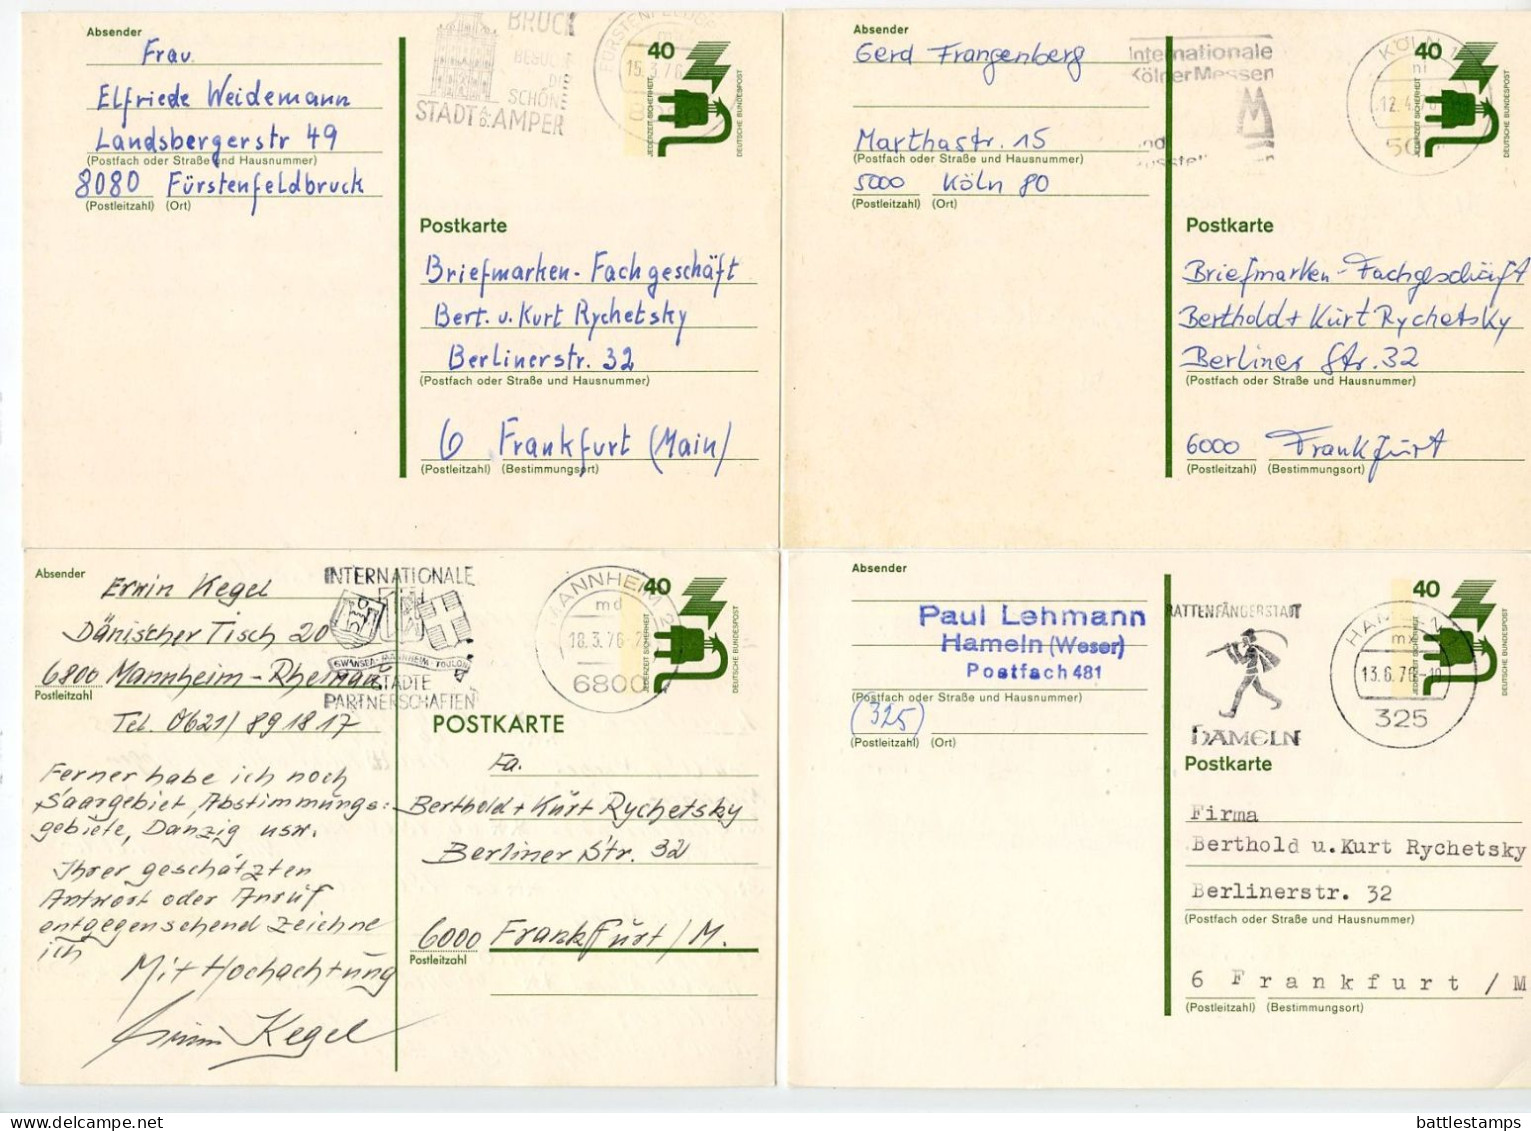 Absender
Frau.
Elfriede Weidemann
Landsbergerstr 49
(Postfach oder Straße und Hausnummer)
8080 Fürstenfeldbruck
(Postleitzahl) (Ort)
BRUCK
BESUCH
DIE
SCHÖNE
STADT A.D. AMPER
FÜRSTENFELDBR
15.3.76
40
JEDERZEIT SICHERHEIT
DEUTSCHE BUNDESPOST
Postkarte
Briefmarken-Fachgeschäft
Bert. u. Kurt Rychetsky
Berlinerstr. 32
(Postfach oder Straße und Hausnummer)
6 Frankfurt (Main)
(Postleitzahl) (Bestimmungsort)
Absender
Gerd Frangenberg
Marthastr. 15
(Postfach oder Straße und Hausnummer)
5000 Köln 80
(Postleitzahl) (Ort)
Internationale
Kölner Messen
KÖLN 1
12.4.76
40
JEDERZEIT SICHERHEIT
DEUTSCHE BUNDESPOST
Postkarte
Briefmarken-Fachgeschäft
Berthold + Kurt Rychetsky
Berliner Str. 32
(Postfach oder Straße und Hausnummer)
6000 Frankfurt
(Postleitzahl) (Bestimmungsort)
Absender
Erwin Kegel
Dänischer Tisch 20
6800 Mannheim-Rheinau
Postleitzahl
Tel. 0621/891817
INTERNATIONALE
SWANSEA-MANNHEIM-TOULON
STÄDTE
PARTNERSCHAFTEN
MANNHEIM
md
18.3.76
6800
40
JEDERZEIT SICHERHEIT
DEUTSCHE BUNDESPOST
POSTKARTE
Ferner habe ich noch
Saargebiet, Abstimmungs-
gebiete, Danzig usw.
Ihrer geschätzten
Antwort oder Anruf
entgegensehend zeichne
ich
Mit Hochachtung
Erwin Kegel
Fa.
Berthold + Kurt Rychetsky
Berliner Str. 32
6000 Frankfurt/M.
Postleitzahl
Absender
Paul Lehmann
Hameln (Weser)
Postfach 481
(Postfach oder Straße und Hausnummer)
(325)
(Postleitzahl) (Ort)
RATTENFÄNGERSTADT
HAMELN
HAMELN 1
mx
13.6.76-19
325
40
JEDERZEIT SICHERHEIT
DEUTSCHE BUNDESPOST
Postkarte
Firma
Berthold u. Kurt Rychetsky
Berlinerstr. 32
(Postfach oder Straße und Hausnummer)
6 Frankfurt/M
(Postleitzahl) (Bestimmungsort)
battlestamps